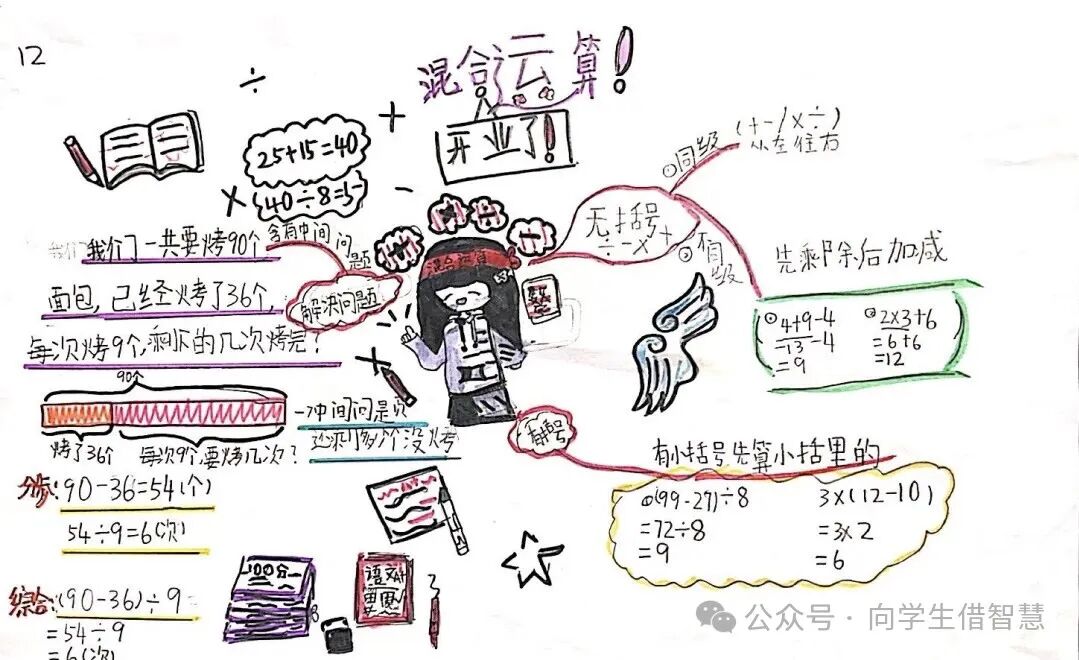 12
混合运算!
开业了!
÷
+
×
-
25+15=40
40÷8=5
①同级
(+-/×÷)
从左往右
无括号
÷-×+
②不同级
先乘除后加减
①4+9-4
13-4
=9
②2×3+6
=6+6
=12
混合运算
解决问题
含有中间问题
我们 我们一共要烤90个
面包,已经烤了36个,
每次烤9个,剩下的几次烤完?
90个
烤了36个
每次9个,要烤几次?
中间问是
还剩多少个没烤
分步:90-36=54(个)
54÷9=6(次)
综合:(90-36)÷9
=54÷9
=6(次)
有小括号先算小括里的
(99-27)÷8
=72÷8
=9
3×(12-10)
=3×2
=6
100分
语文
公众号·向学生借智慧